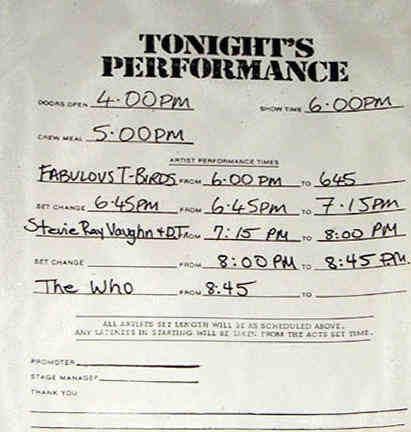 TONIGHT'S
PERFORMANCE
DOORS OPEN 4:00PM SHOW TIME 6:00PM
CREW MEAL 5:00PM
ARTIST PERFORMANCE TIMES
FABULOUS T-BIRDS FROM 6:00 PM TO 645
SET CHANGE 6:45PM FROM 6:45PM TO 7:15PM
Stevie Ray Vaughn & D.T. FROM 7:15 PM TO 8:00 PM
SET CHANGE FROM 8:00PM TO 8:45 PM.
The Who FROM 8:45 TO
ALL ARTISTS SET LENGTH WILL BE AS SCHEDULED ABOVE.
ANY LATENESS IN STARTING WILL BE TAKEN FROM THE ACTS SET TIME.
PROMOTER
STAGE MANAGER
THANK YOU